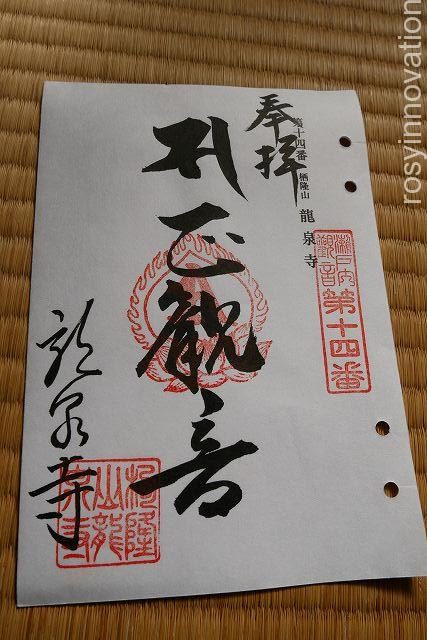 rosyinnovation
瀬戸内
觀音
第十四番
第十四番 栖隆山 龍泉寺
奉拝
正觀音
龍泉寺
栖隆
山龍
泉寺